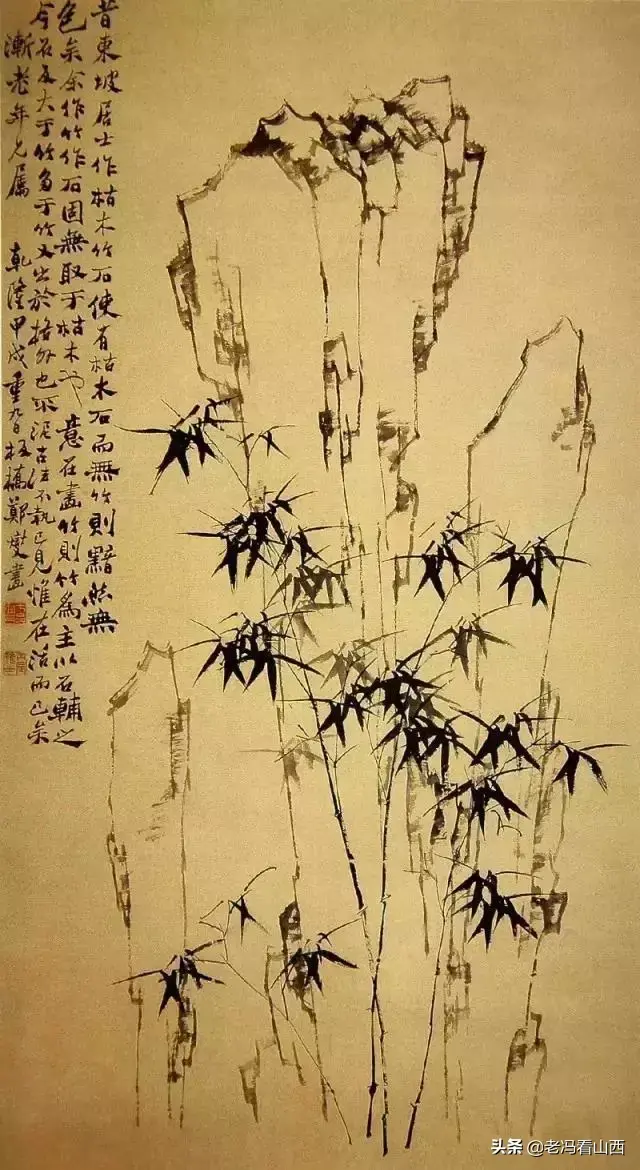 昔東坡居士作枯木竹石使有枯木石而無竹則黯然無
色矣余作竹作石固無取于枯木也意在畫竹則竹爲主以石輔之
今石反大于竹多于竹又出於格外也不泥古法不執己見惟在活而已矣
漸老年兄屬 乾隆甲戌重九日板橋鄭燮畫
头条 @老冯看山西